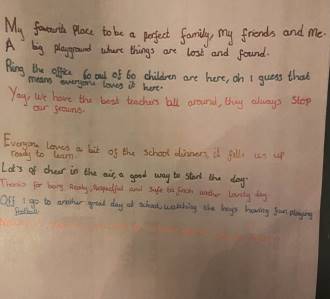 My favourite Place to be a perfect family, my friends and me.
A big playground where things are lost and found.
Ring the office 60 out of 60 children are here, oh I guess that
means everyone loves it here.
Yay, we have the best teachers ball around, they always stop
our frowns.
Everyone Loves a bit of the school dinners, it fills us up
ready to learn.
Lot's of cheer in the air, a good way to start the day.
Thanks for being Ready, Respectful and Safe to finish another lovely day
Off I go to another great day at school, watching the boys having fun, playing
football